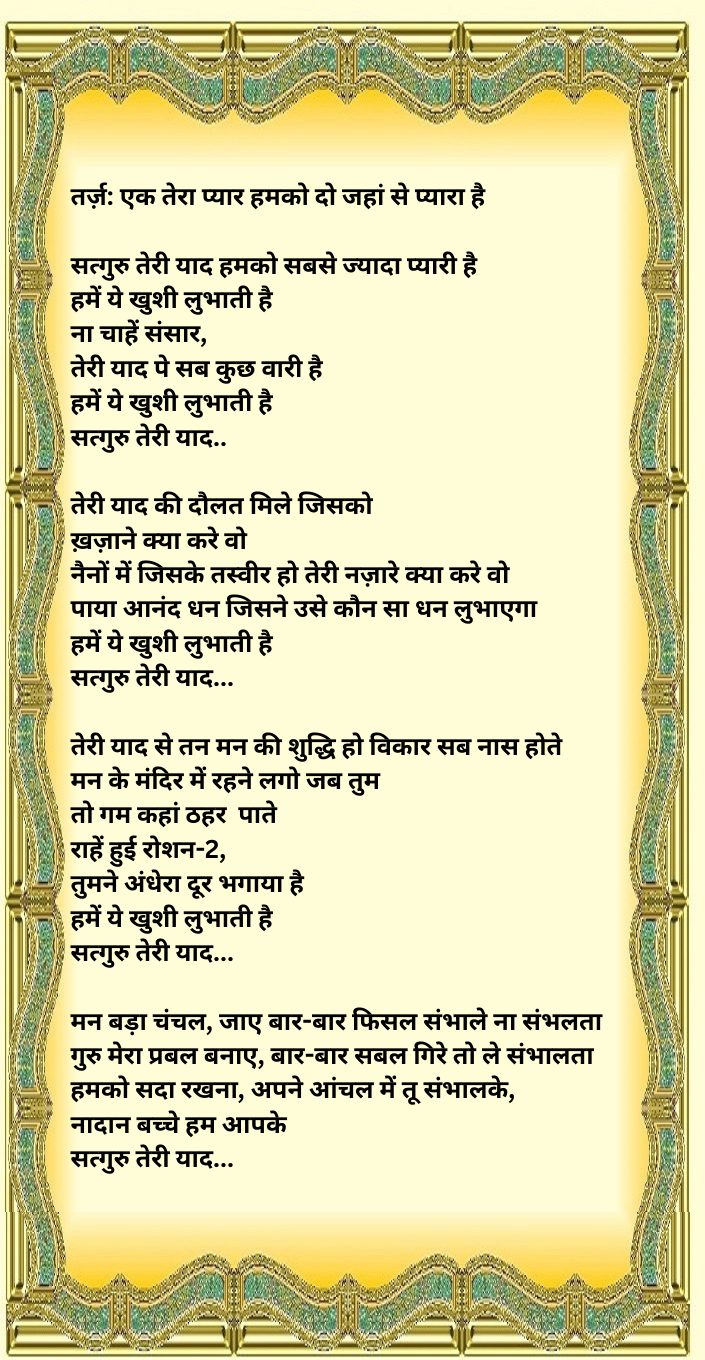 तर्ज़: एक तेरा प्यार हमको दो जहां से प्यारा है
सत्गुरु तेरी याद हमको सबसे ज्यादा प्यारी है
हमें ये खुशी लुभाती है
ना चाहें संसार,
तेरी याद पे सब कुछ वारी है
हमें ये खुशी लुभाती है
सत्गुरु तेरी याद..
तेरी याद की दौलत मिले जिसको
ख़ज़ाने क्या करे वो
नैनों में जिसके तस्वीर हो तेरी नज़ारे क्या करे वो
पाया आनंद धन जिसने उसे कौन सा धन लुभाएगा
हमें ये खुशी लुभाती है
सत्गुरु तेरी याद...
तेरी याद से तन मन की शुद्धि हो विकार सब नास होते
मन के मंदिर में रहने लगो जब तुम
तो गम कहां ठहर  पाते
राहें हुई रोशन-2,
तुमने अंधेरा दूर भगाया है
हमें ये खुशी लुभाती है
सत्गुरु तेरी याद...
मन बड़ा चंचल, जाए बार-बार फिसल संभाले ना संभलता
गुरु मेरा प्रबल बनाए, बार-बार सबल गिरे तो ले संभालता
हमको सदा रखना, अपने आंचल में तू संभालके,
नादान बच्चे हम आपके
सत्गुरु तेरी याद...